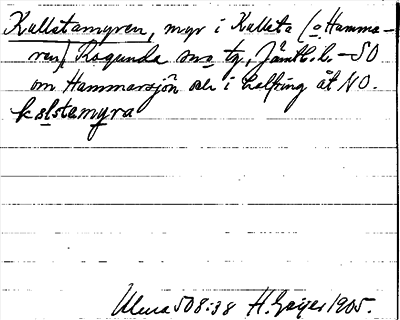 Kallstamyren, myr i Kallsta (o. Hamma-
ren), Ragunda sn o tg, Jämtl. l. – SO
om Hammarsjön och i halfring åt NO.
kalstamyra
Ulma 508:38 H. Geijer 1905.